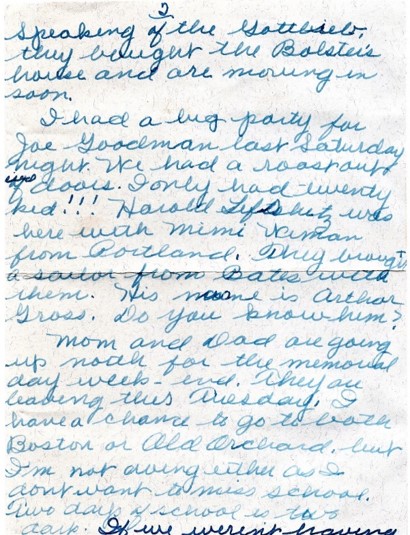 2
Speaking of the Gottlieb,
they bought the Bolstein
house and are moving in
soon.
I had a big party for
Joe Goodman last Saturday
night. We had a roast out
of doors. I only had twenty
kid!!! Harold Lifshitz was
here with Mimi Niman
from Portland. They brought
a sailor from Bates with
them. His name is Arthur
Gross. Do you know him?
Mom and Dad are going
up north for the memorial
day week-end. They are
leaving this Tuesday. I
have a chance to go to both
Boston or Old Orchard, but
I'm not doing either as I
dont want to miss school.
Two days of school is two
days. If we weren't having